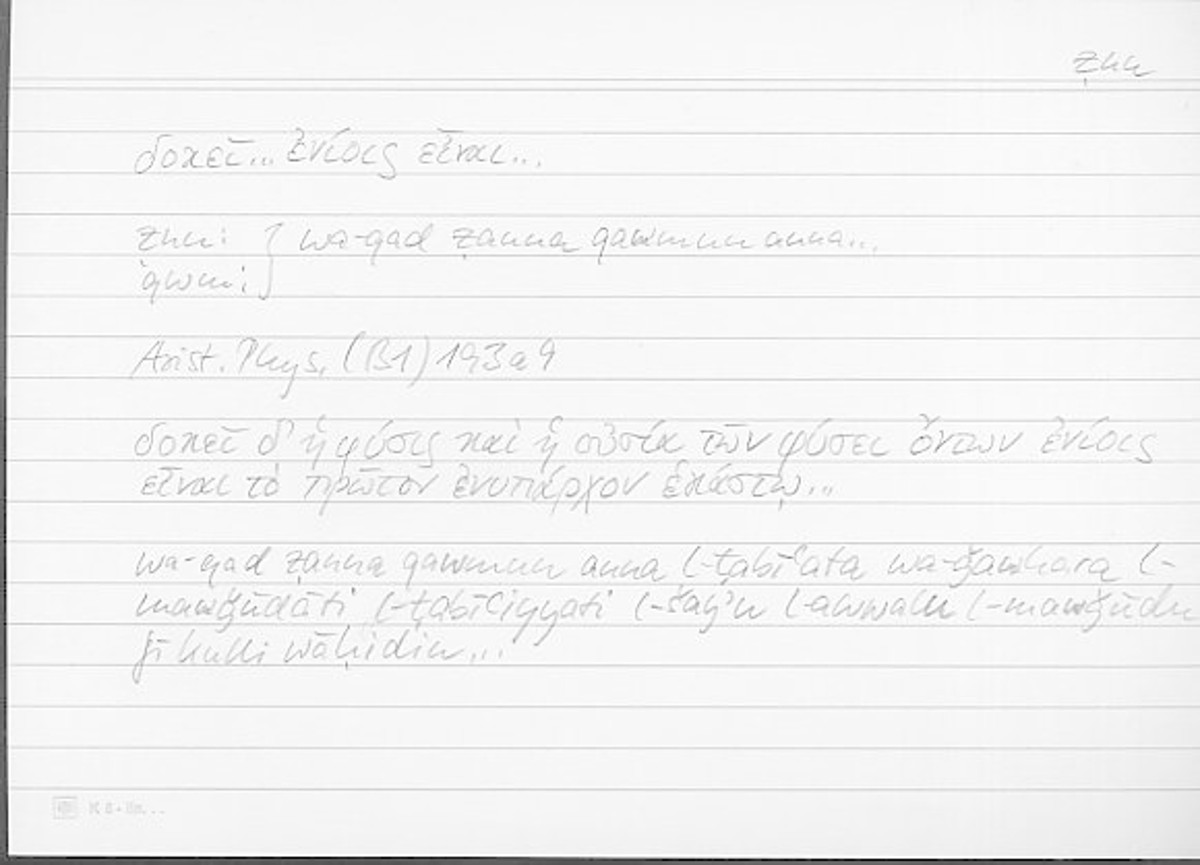 ẓnn
δοκεῖ... ἐνίοις εἶναι...
ẓnn: } wa-qad ẓanna qawmun anna...
qwm:
Arist. Phys. (B1) 193a9
δοκεῖ δ' ἡ φύσις καὶ ἡ οὐσία τῶν φύσει ὄντων ἐνίοις
εἶναι τὸ πρῶτον ἐνυπάρχον ἑκάστῳ...
wa-qad ẓanna qawmun anna l-ṭabīʿata wa-ǧawhara l-
mawǧūdāti l-ṭabīʿiyyati l-šayʾu l-awwalu l-mawǧūdu
fī kulli wāḥidin...